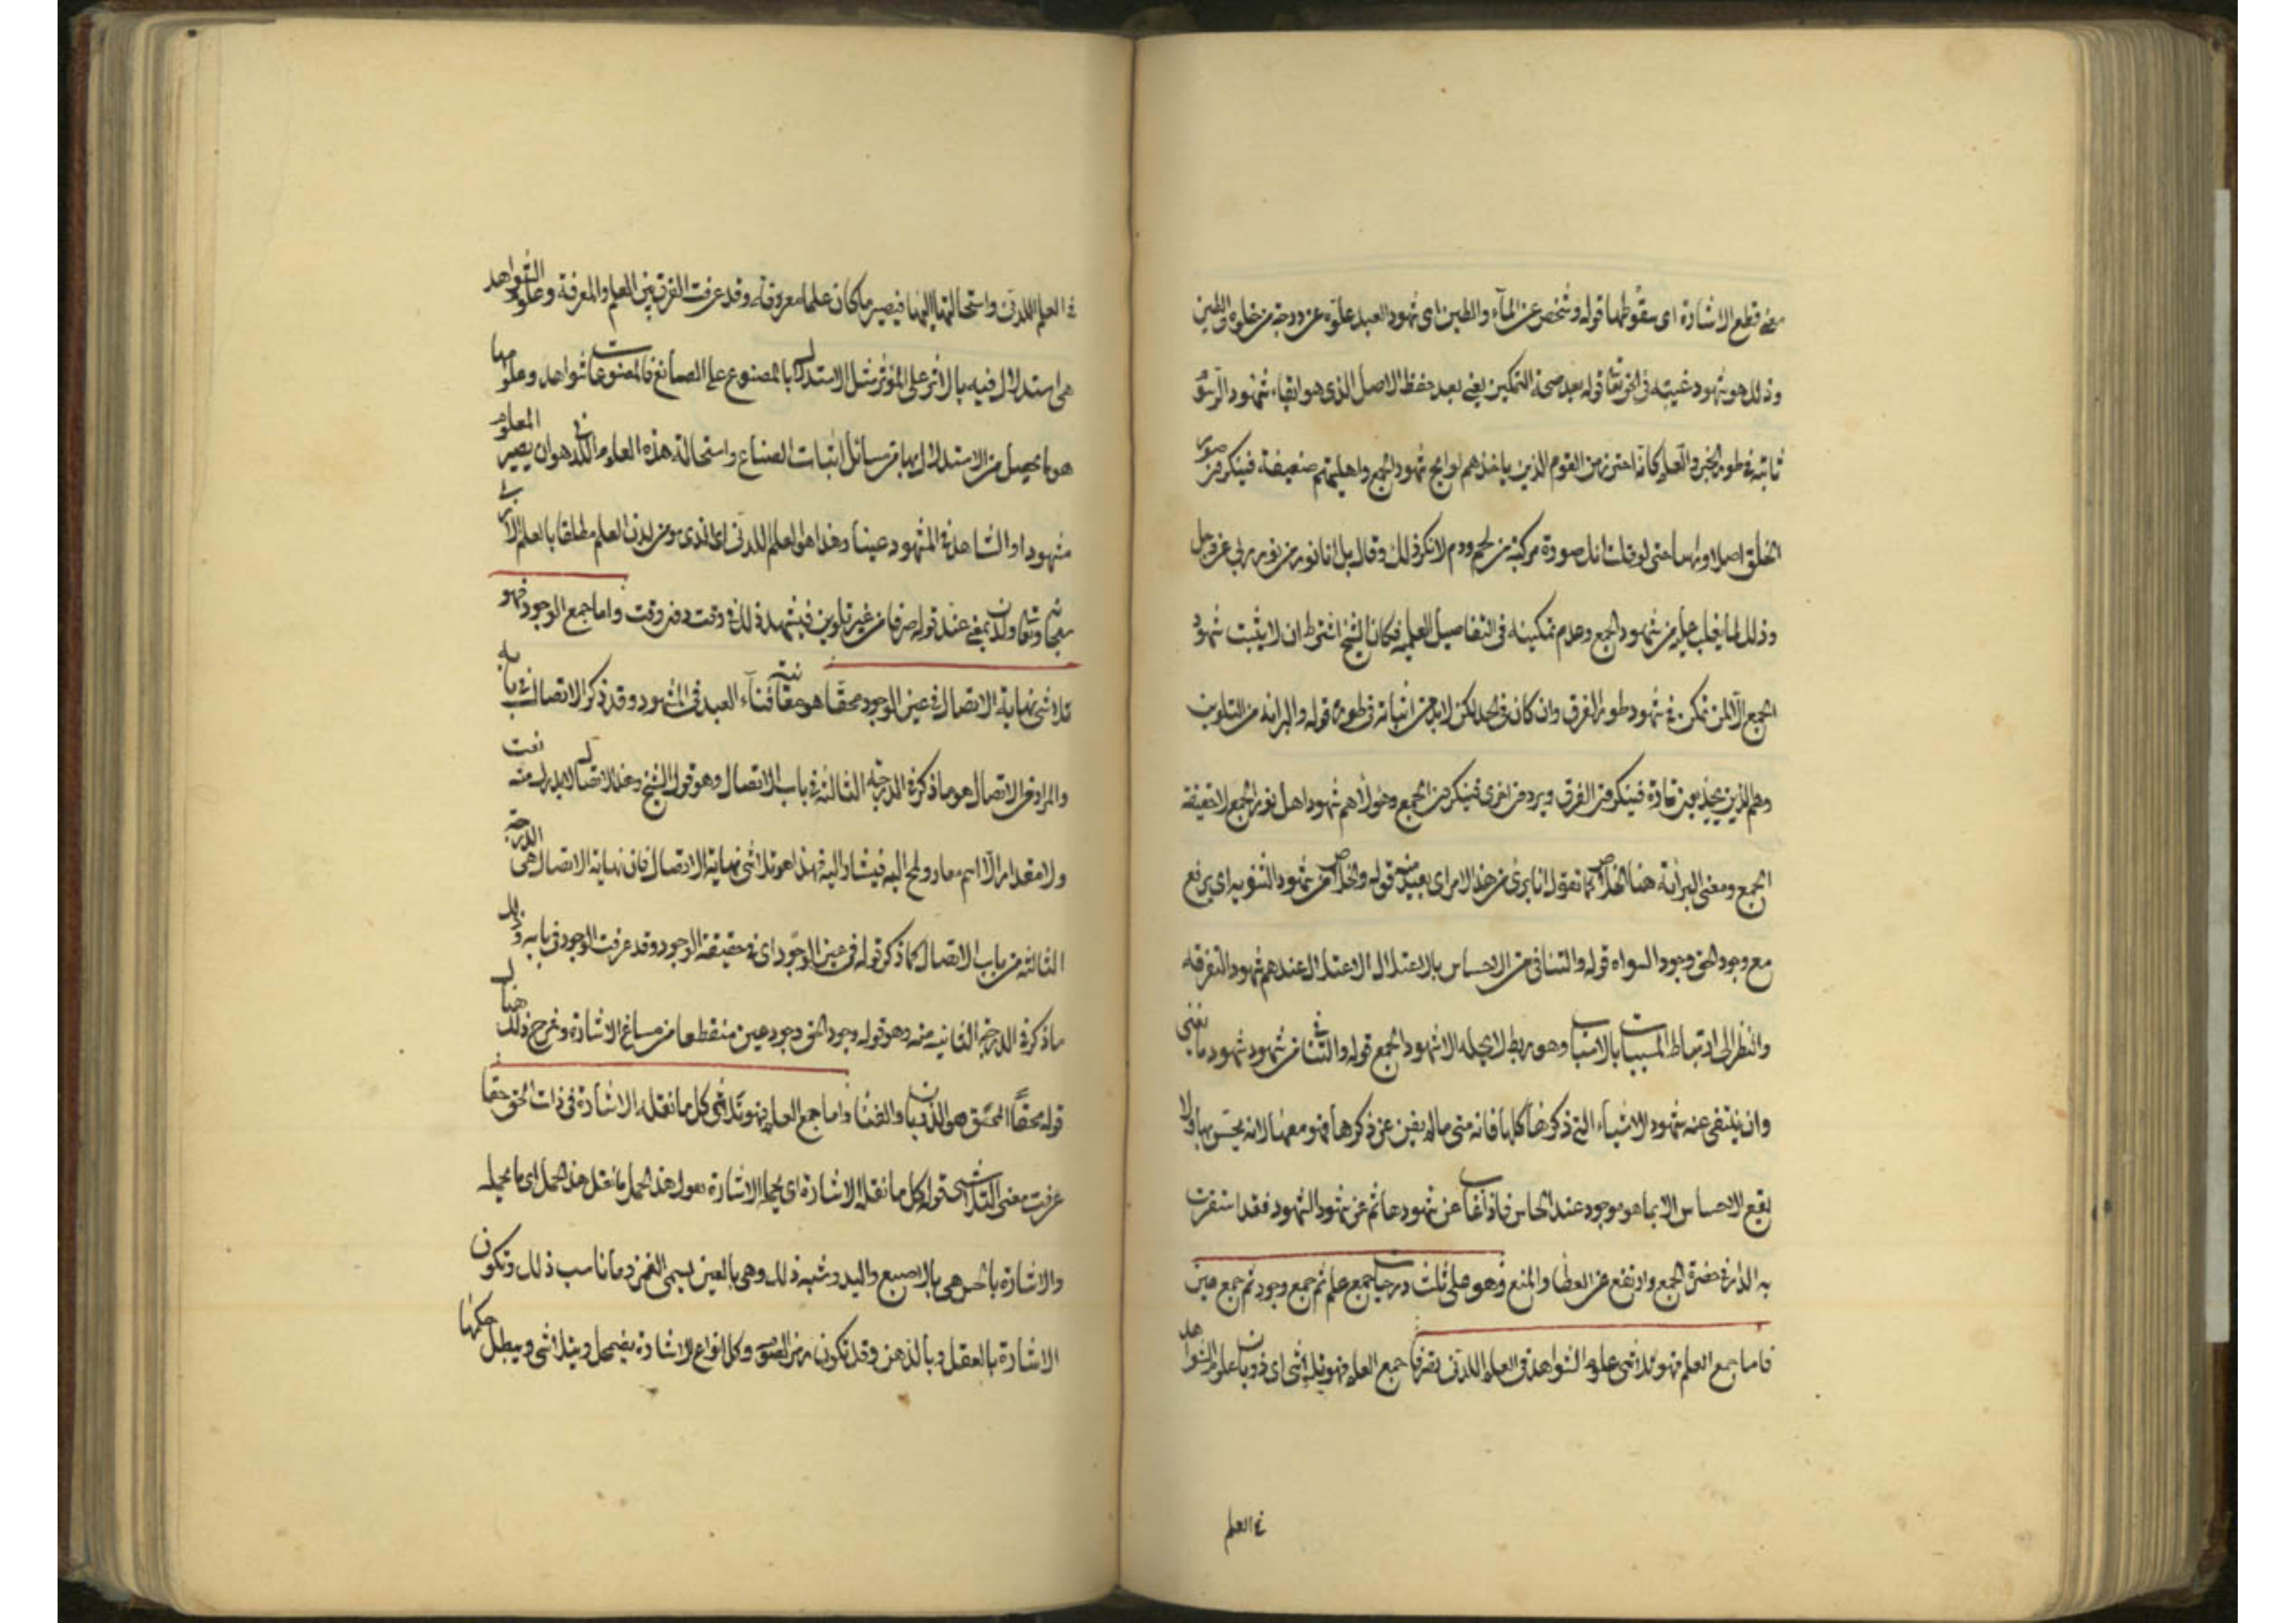 معنى قطع الاشارة اى سقوطها قوله وشخص عن المآء والطين اى شهود العبد علوّه عن درجة من خلق من الطين
وذلك هو شهود غيبته فى الحق تعا قوله بعد صحة التمكين يعنى بعد حفظ الاصل الذى هو ابقاء شهود الرسوم
ثابتة فى طور الخبر والعلم كانه احترز من القوم الذين ياخذهم لوايح شهود الجمع واهليتهم ضعيفة فينكرون صور
الخلق اصلا وراسا حتى لو قلت انك صورة مركبة من لحم ودم لانكر ذلك وقال بل انا نور من نور ربى عز وجل
وذلك لما يغلب عليه من شهود الجمع وعدم تمكينه فى التفاصيل العلمية فكان الشيخ اشترط ان لا يثبت شهود
الجمع الا لمن تمكن فى شهود طور الفرق وان كان فى الحد لكن لابد من اثباته فى طوره قوله والبراءة من التلوين
وهم الذين يجذبون تارة فينكرون الفرق ويردون اخرى فينكرون الجمع وهولاء هم شهود اهل نور الجمع لا حقيقة
الجمع ومعنى البراءة هنا الخلاص كما تقول انا برىء من هذا الامر اى بعيد منه قوله والخلاص من شهود الثنوية اى يرتفع
مع وجود الحق وجود السواه قوله والتنافى من الاحساس بالاعتلال الاعتلال عندهم شهود التفرقة
والنظر الى ارتباط المسببات بالاسباب وهو ربط لا يحله الا شهود الجمع قوله والتنافى من شهود شهودها يعنى
وان ينتفى عنه شهود الاشياء التى ذكرها كلها فانه متى ما لم يفن عن ذكرها فهو معها لانه يحس بها ولا
يقع الاحساس الا بما هو موجود عند الحاس فاذا غاب عن شهودها ثم عن شهود الشهود فقد استقرت
به الدار فى حضرة الجمع وارتفع عن العطا والمنع وهو على ثلث درجات جمع علم ثم جمع وجود ثم جمع عين
فاما جمع العلم فهو تلاشى علوم الشواهد فى العلم اللدنى صرفا جمع العلم فهو تلاشى اى ذوبان علوم الشواهد
فى العلم
فى العلم اللدنى واستحالتها اليها فيصير ما كان علما معروفة وقد عرفت الفرق بين العلم والمعرفة وعلوم الشواهد
هى استدلال فيه بالاثر على المؤثر مثل الاستدلال بالمصنوع على الصانع فالمصنوعات شواهد وعلومها
هو ما يحصل من الاستدلال بها من مسائل اثبات الصناع واستحالة هذه العلوم فى اللدنى هو ان يصير المعلوم
مشهودا والشاهد فى المشهود عينا وهذا هو العلم اللدنى اى الذى هو من لدن العلم مطلقا بالعلم الازلى
سبحانه وتعا ولدن بمعنى عند قوله صرفا من غير تلوين فيشهد ذلك فى وقت دون وقت واما جمع الوجود فهو
تلاشى نهاية الاتصال فى عين الوجود محقا هو مقام فناء العبد فى المشهود وقد ذكر الاتصال فى بابه
والمراد من الاتصال هو ما ذكره فى الدرجة الثالثة فى باب الاتصال وهو قول الشيخ وهذا الاتصال لا يدرك منه نعت
ولا مقدار الا اسم معار ولمح اليه فيشار اليه فهذا هو تلاشى نهاية الاتصال فان نهاية الاتصال هى الدرجة
الثالثة من باب الاتصال كما ذكر قوله فى عين الوجود اى فى حقيقة الوجود وقد عرفت الوجود فى بابه
ما ذكره فى الدرجة الثانية منه وهو قوله وجود الحق وجود عين منقطعا من مساغ الاشارة وشرح ذلك هناك
قوله محقا المحق هو الذوبان والفنا واما جمع العين فهو تلاشى كل ما تقله الاشارة فى ذات الحق حقا
عرفت معنى التلاشى قوله كل ما تقله الاشارة اى تحمله الاشارة تقول هذا الحمل ما تقل هذا الحمل اى ما تحمله
والاشارة بالحس هى بالاصبع واليد وشبه ذلك وهى بالعين يسمى الغمز وما ناسب ذلك وتكون
الاشارة بالعقل وبالذهن وقد تكون من الصوت وكل انواع الاشارة يضمحل ويتلاشى ويبطل حكمها